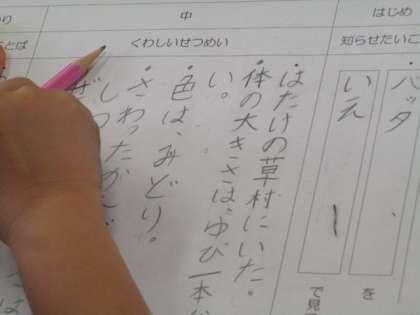 はじめ
知らせたいこ
・バッタ
を
いえ
で見
中
くわしいせつめい
・はたけの草村にいた。
・体の大きさは、ゆび一本
い。
・色は、みどり。
・さわったかんじ
とば